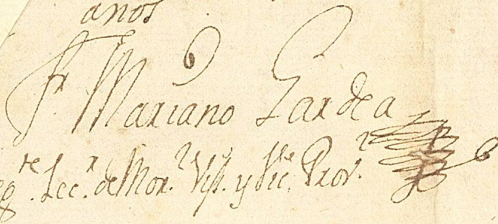 anos
Fr. Mariano Gardea
Lec.r de Mor.l Vist.r y Vic.e Prov.l